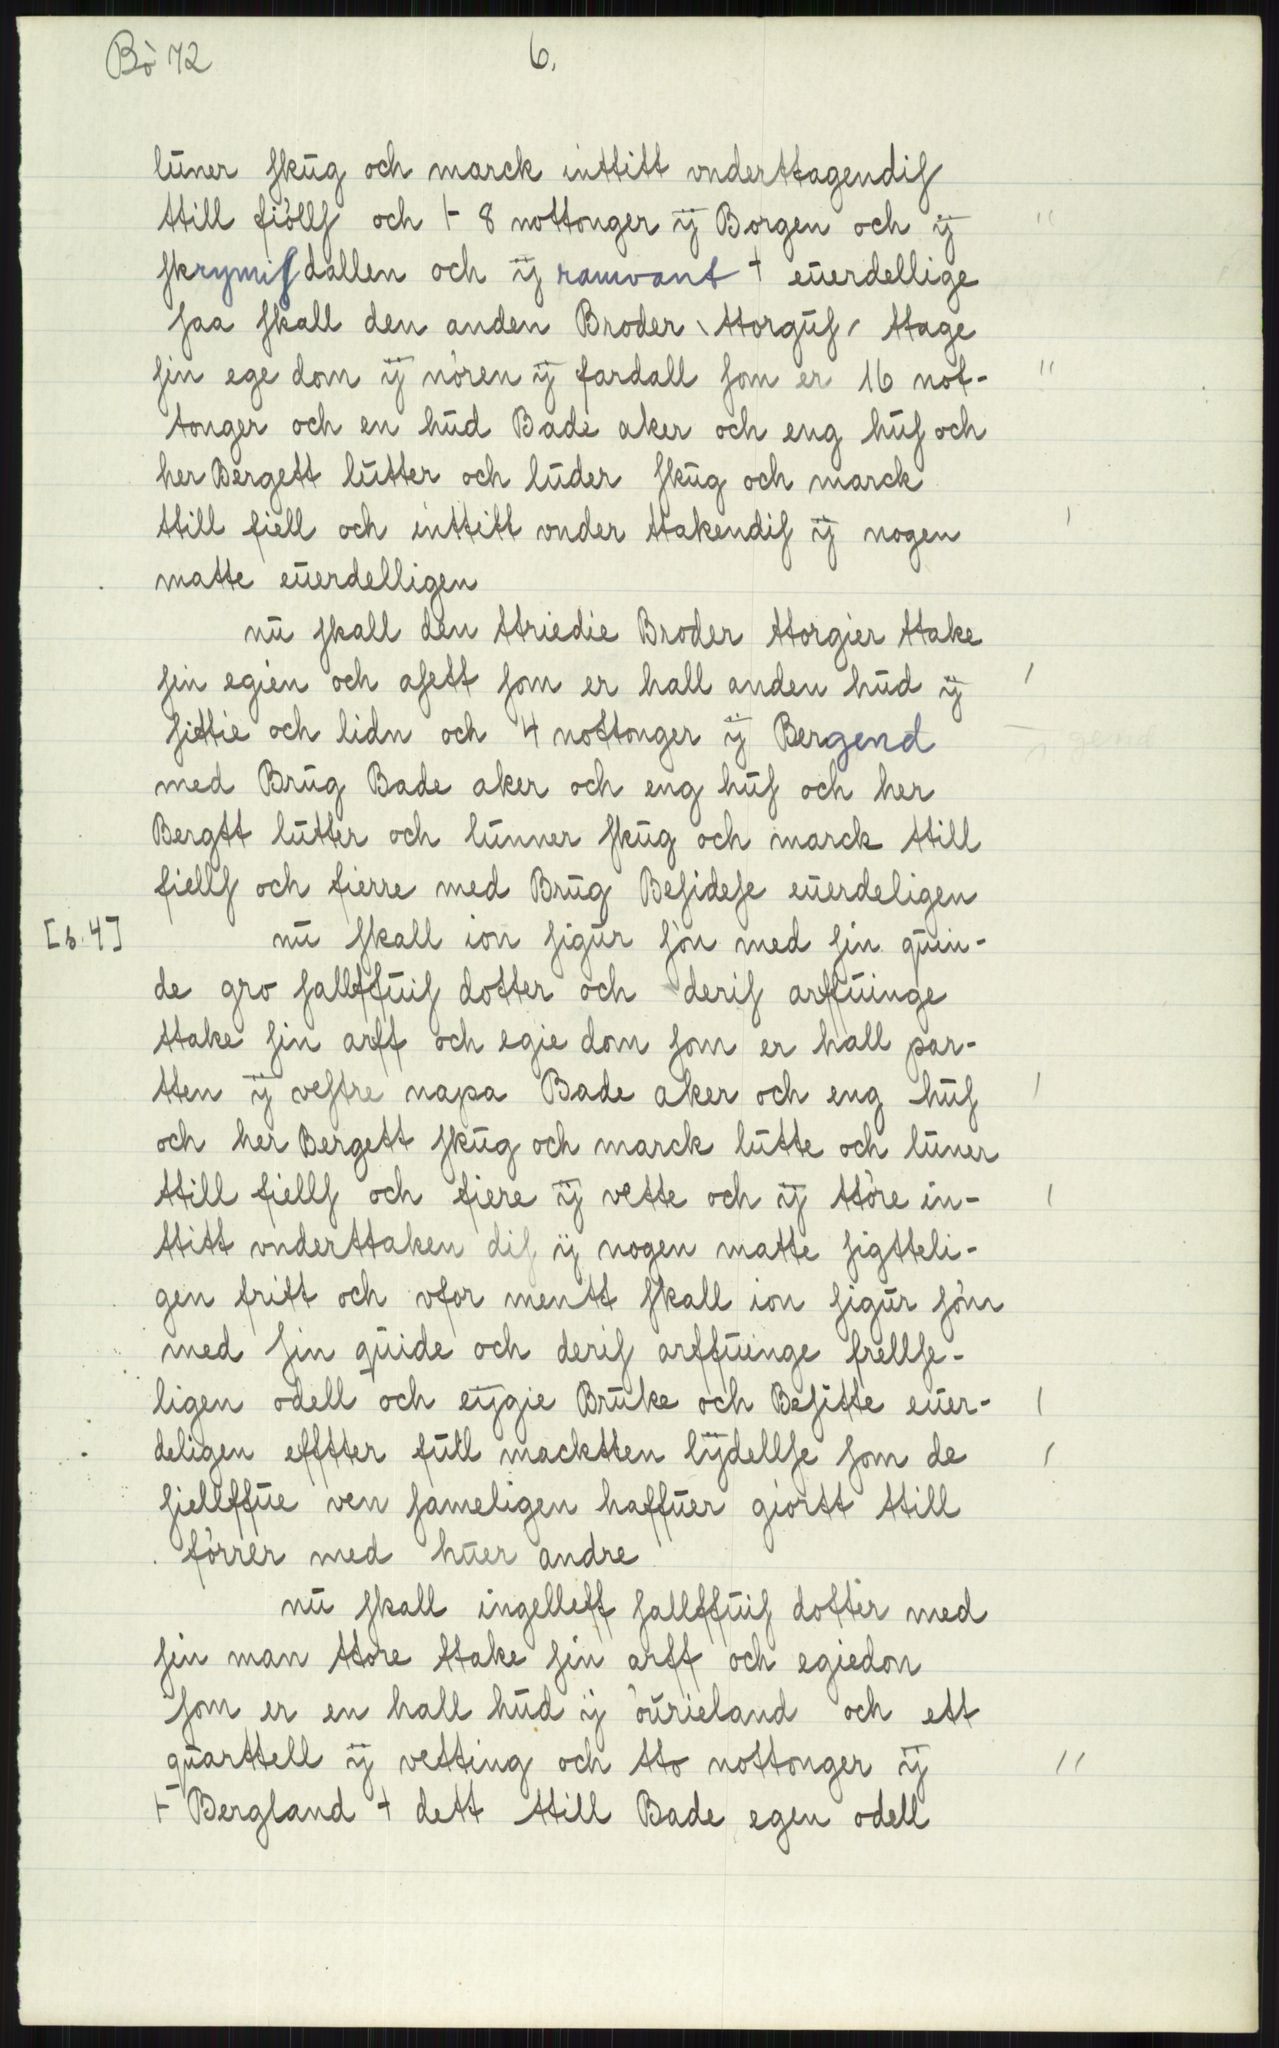 Bö 72
6.
lüner skūg och marck inttitt vnderttagendis
ttill fiölls och ⊢ 8 nottonger ÿ Borgen och ÿ "
skrymisdallen och ÿ ramvant + eūerdellige
saa skall den anden Broder \ ttorgūs / ttage
sin ege dom ÿ nören ÿ fardall som er 16 not- "
tonger och en hūd Bade aker och eng hūs och
her Bergett lūtter och lūder skūg och marck
ttill fiell och inttitt vnder ttakendis ÿ nogen '
matte eūerdelligen
nū skall den ttriedie Broder ttorgier ttake
sin egien och asett som er hall anden hūd ÿ '
sittie och lidn och 4 nottonger ÿ Bergend
gend
med Brūg Bade aker och eng hūs och her
Bergtt lūtter och lūnner skūg och marck ttill
fiells och fierre med Brūg Besidese eūerdeligen
[s. 4] nū skall ion sigūr sön med sin qūin-
de gro sallffūis dotter och deris arffūinge
ttake sin arff och egie dom som er hall par-
tten ÿ vestre napa Bade aker och eng hūs '
och her Bergett skūg och marck lūtte och lūner
ttill fiells och fiere ÿ vette och ÿ ttöre in- '
ttitt vnderttaken dis ÿ nogen matte sigtteli-
gen fritt och vfor mentt skall ion sigūr sön
med sin qūide och deris arffūinge frellse-
ligen odell och eÿgie Brūke och Besitte eūer- '
deligen efftter fūll macktten lÿdellse som de '
siellffūe ven sameligen haffūer giortt ttill
förrer med hūer andre
nū skall ingelleff sallffūis dotter med
sin man ttore ttake sin arff och egiedon
som er en hall hūd ÿ öūrieland och ett
qūarttell ÿ vetting och tto nottonger ÿ "
⊢ Bergland + dett ttill Bade egen odell